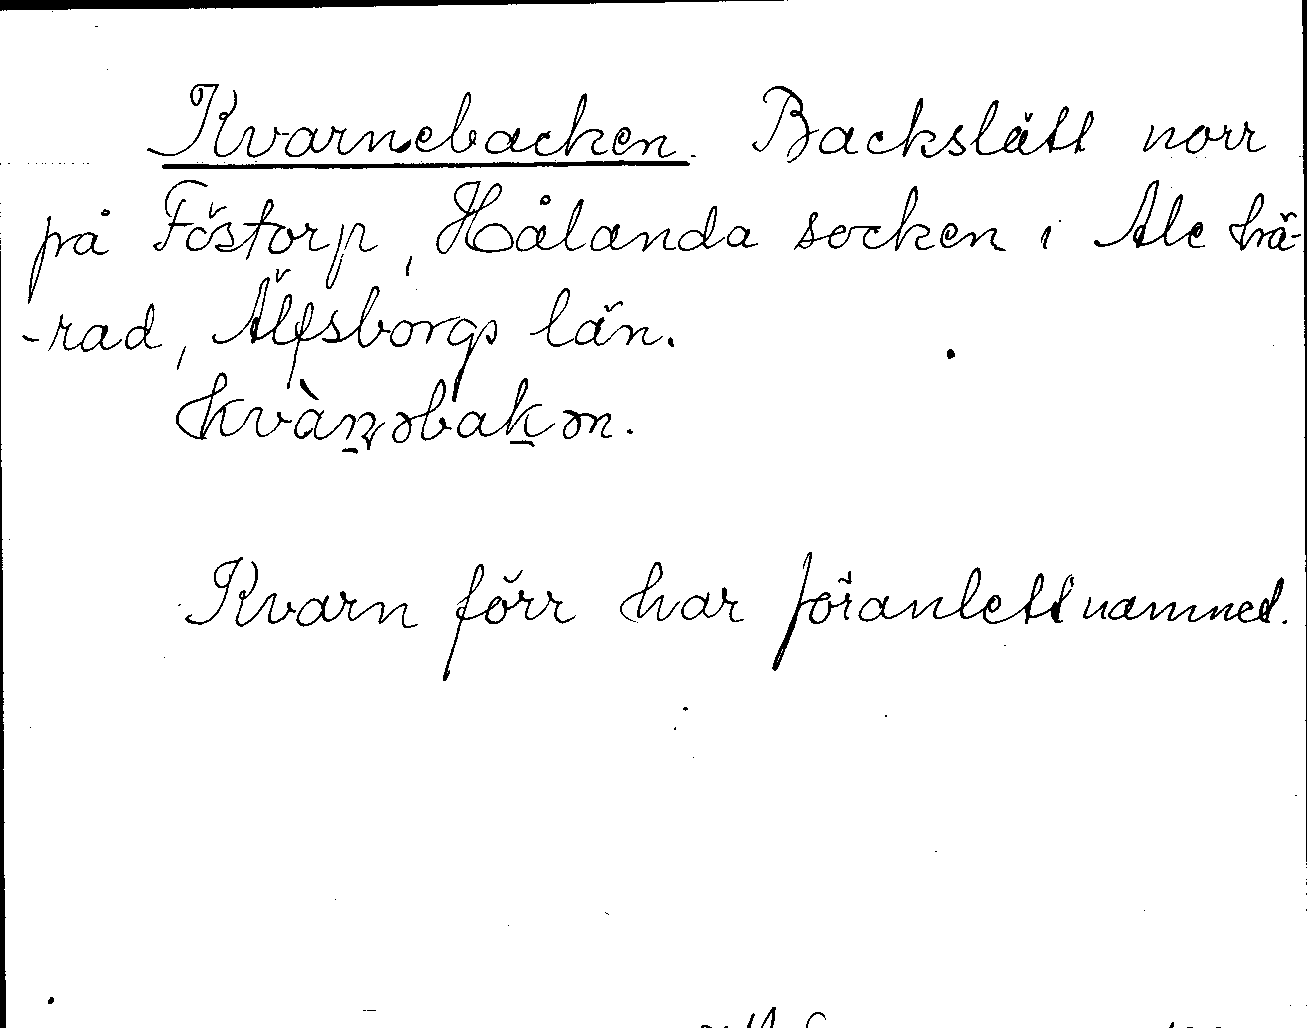 Kvarnebacken. Backslätt norr
på Föstorp, Hålanda socken i Ale hä-
-rad, Älfsborgs län.
kvàn̠əbak̠ən.
Kvarn förr har föranlett namnet.